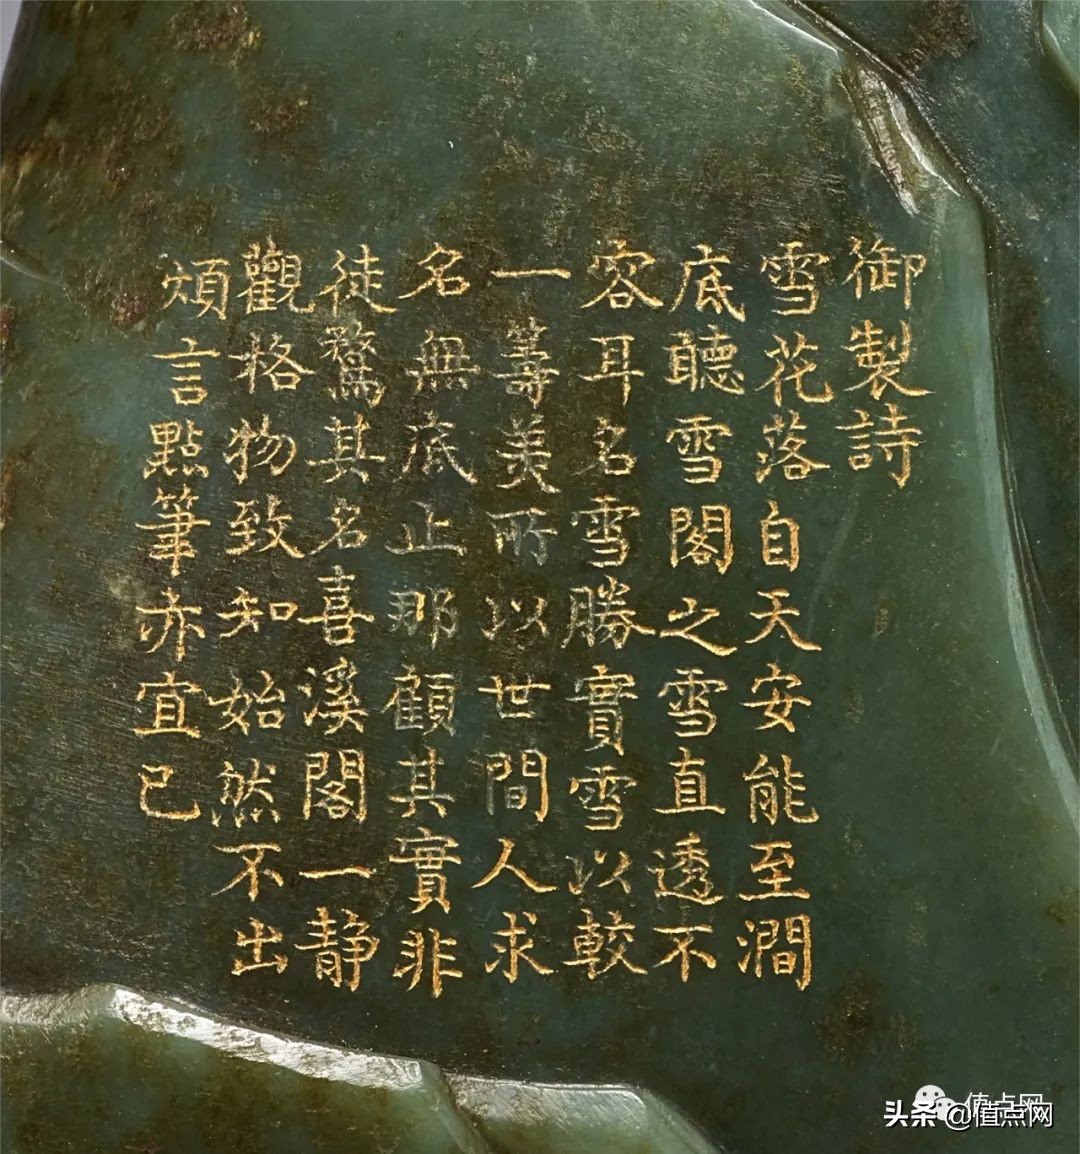 御製詩
雪花落自天安能至澗
底聽雪閣之雪直透不
容耳名雪勝實雪以較
一籌美所以世間人求
名無底止那顧其實非
徒騖其名喜溪閣一静
觀格物致知始然不出
煩言點筆亦宜已
值点网
头条 @值点网